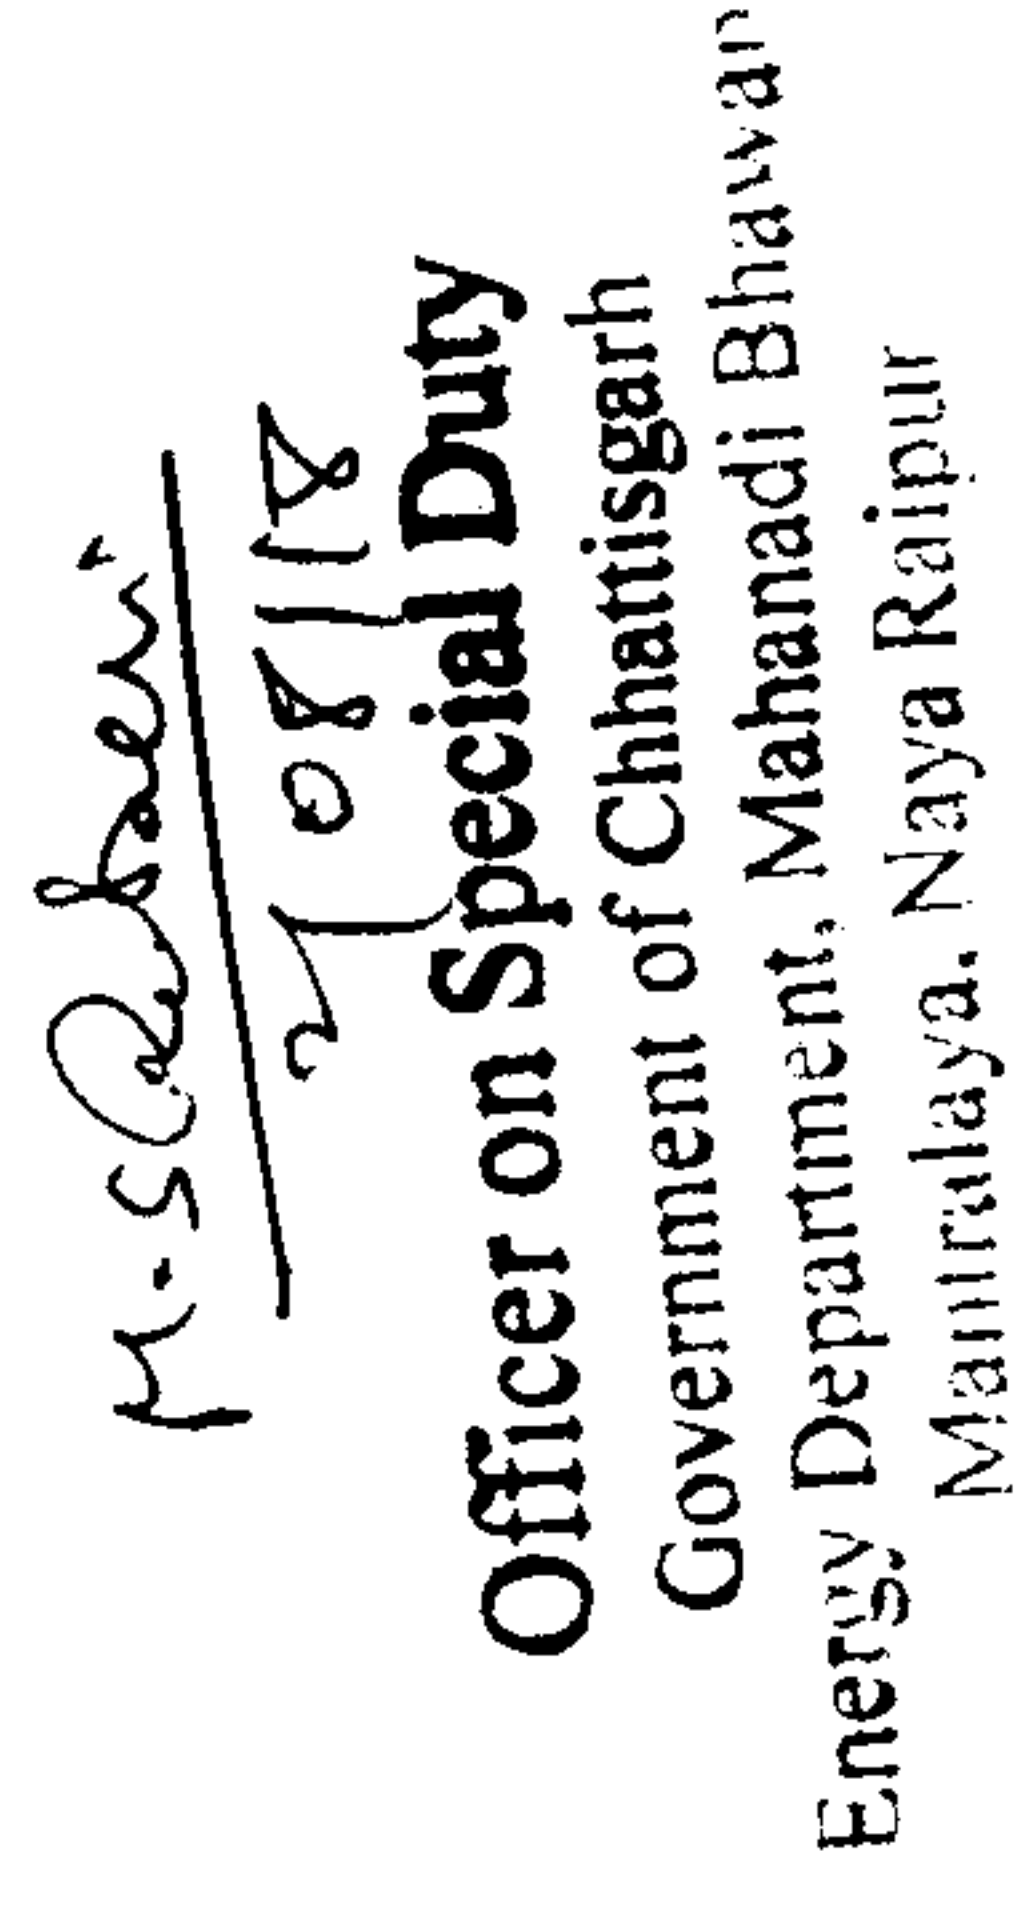 M.S.
Officer on Special Duty
Government of Chhattisgarh
Energy Department, Mahanadi Bhawan
Mantralaya, Naya Raipur